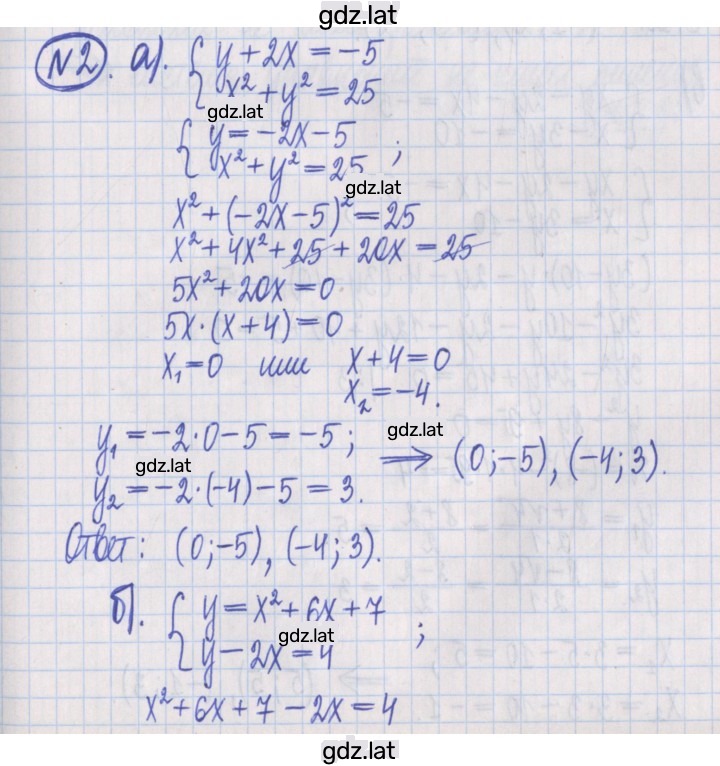 gdz.lat
№2. а). { y + 2x = -5
x² + y² = 25
gdz.lat
{ y = -2x - 5
x² + y² = 25 ;
gdz.lat
x² + (-2x - 5)² = 25
x² + 4x² + 25 + 20x = 25
5x² + 20x = 0
5x · (x + 4) = 0
x₁ = 0 или x + 4 = 0
x₂ = -4.
gdz.lat
y₁ = -2 · 0 - 5 = -5 ;
⟹ (0; -5), (-4; 3).
gdz.lat
y₂ = -2 · (-4) - 5 = 3.
Ответ: (0; -5), (-4; 3).
б). { y = x² + 6x + 7
gdz.lat
y - 2x = 4 ;
x² + 6x + 7 - 2x = 4
gdz.lat